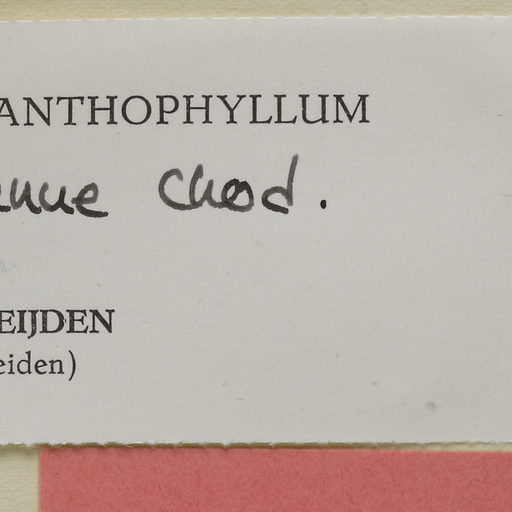 ANTHOPHYLLUM
enue Chod.
EIJDEN
eiden)